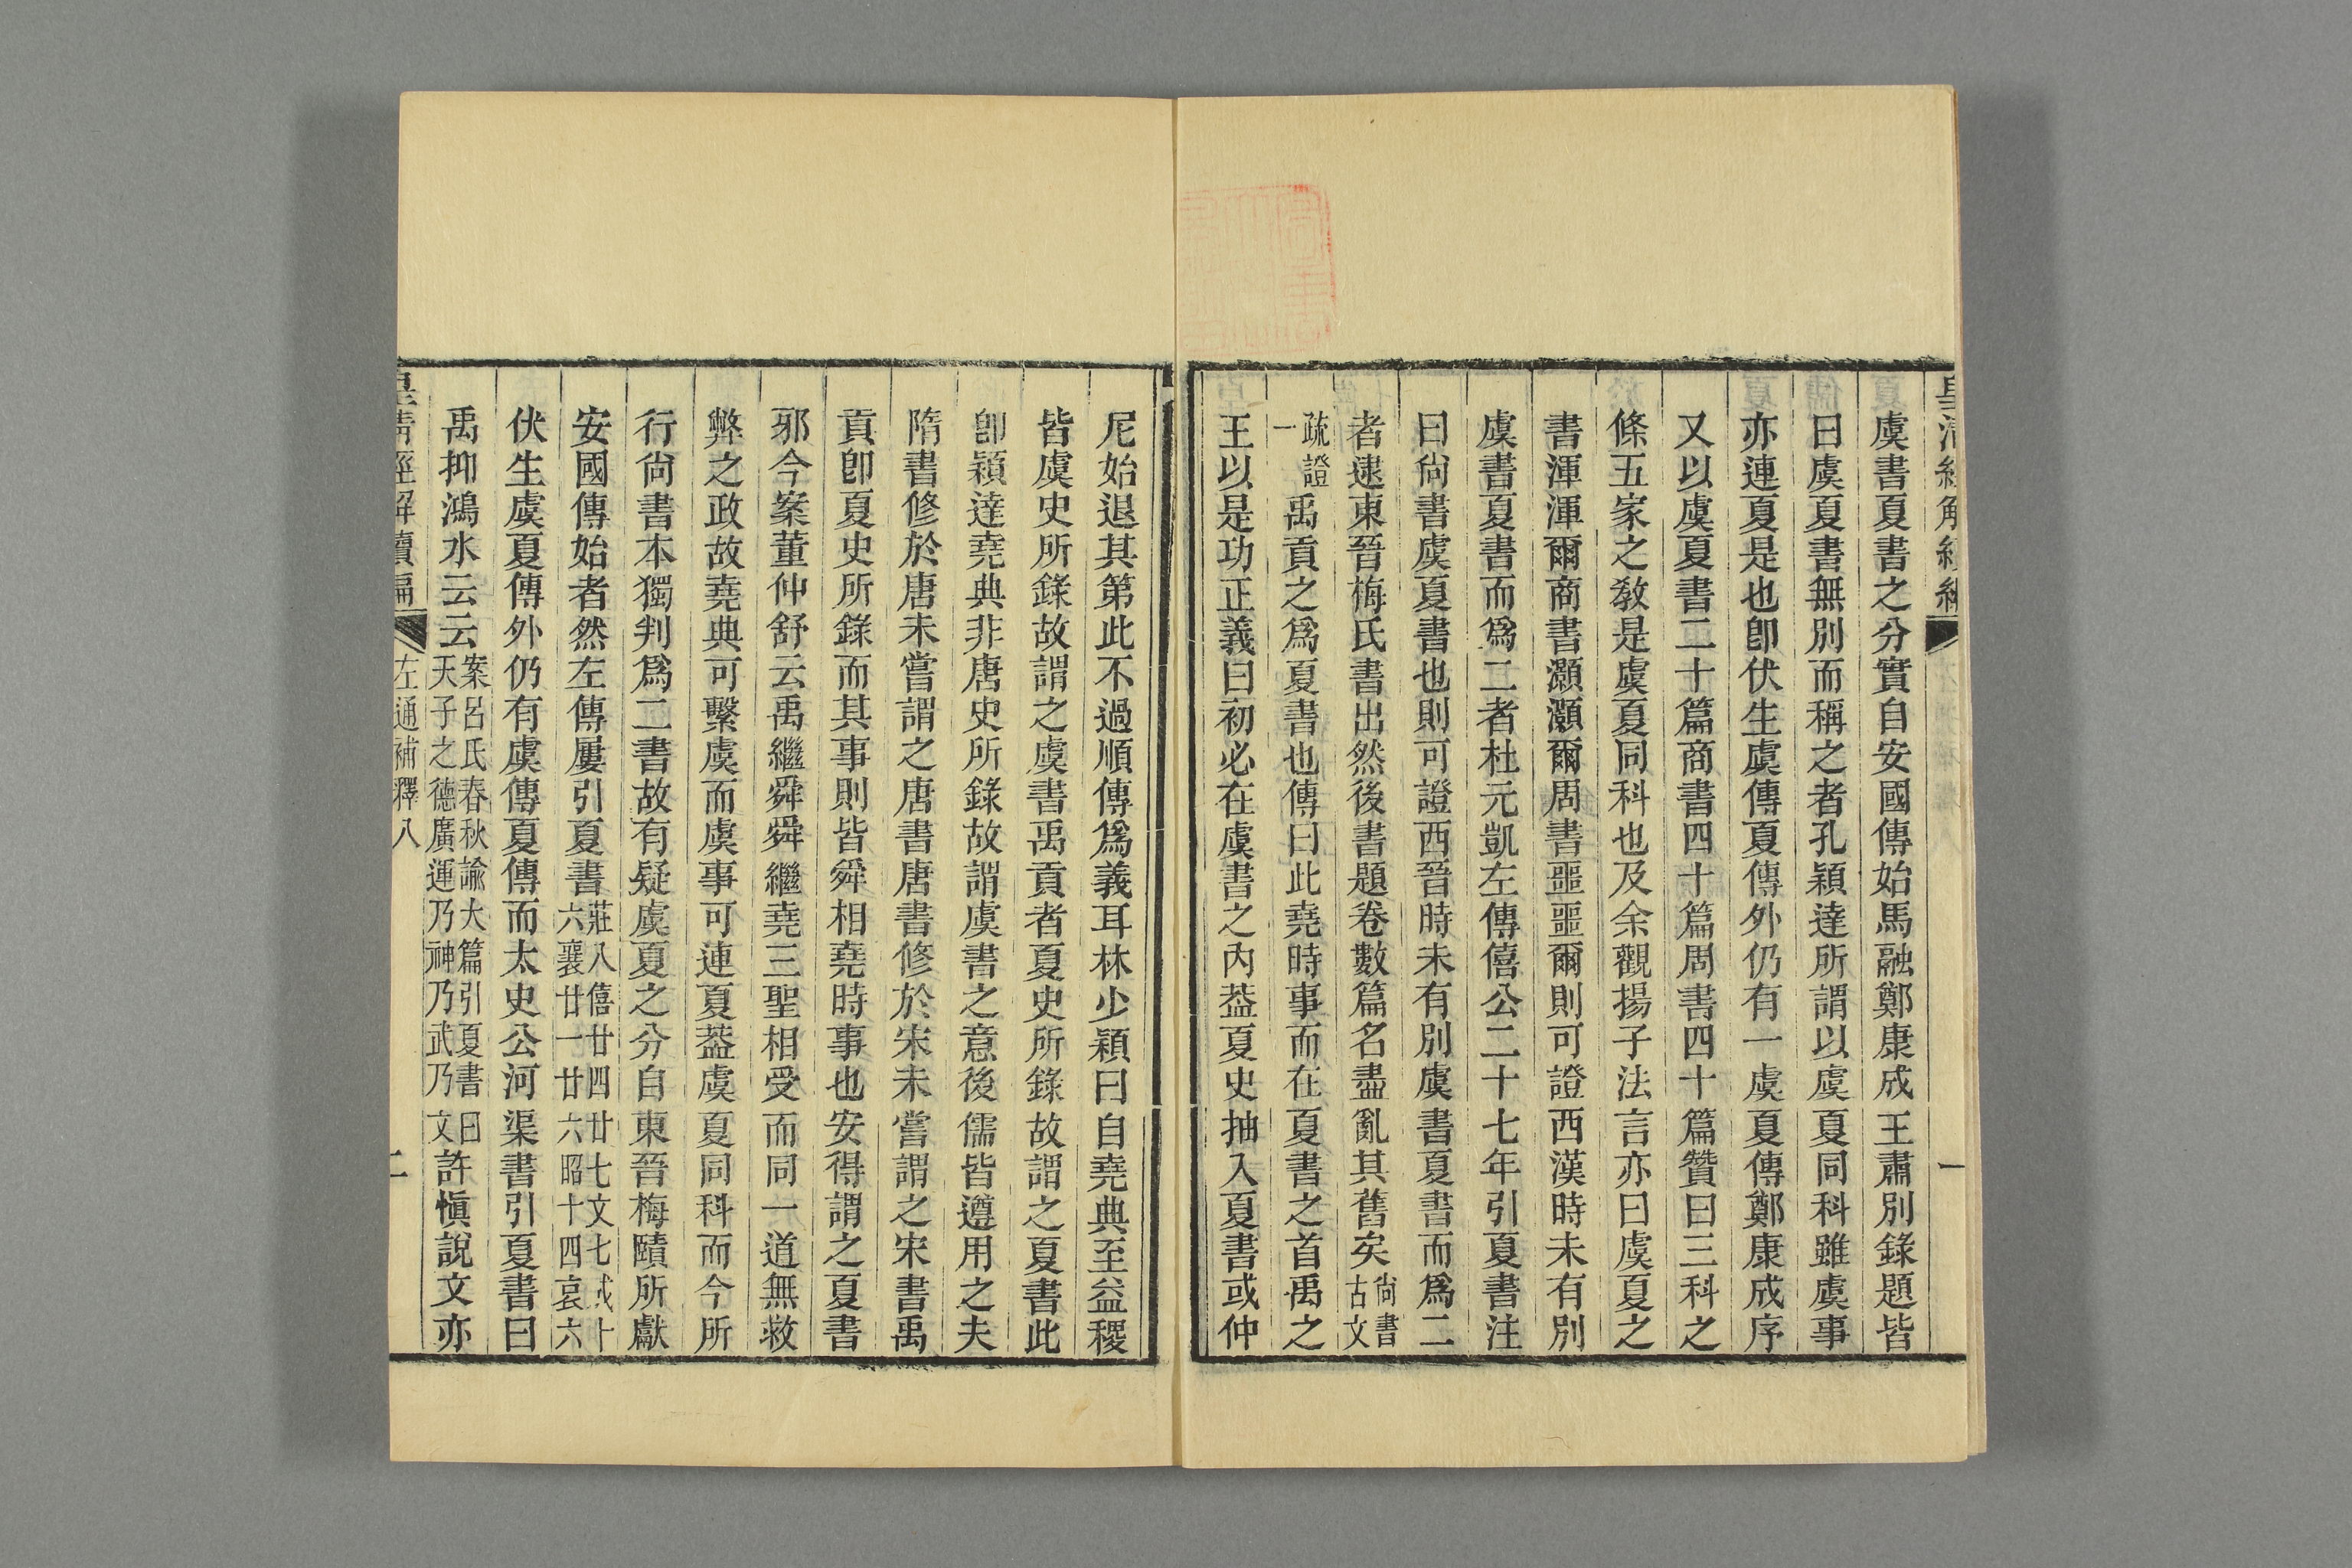 虞書夏書之分實自安國傳始馬融鄭康成王肅別錄題皆
曰虞夏書無別而稱之者孔穎達所謂以虞夏同科雖虞事
亦連夏是也卽伏生虞傳夏傳外仍有一虞夏傳鄭康成序
又以虞夏書二十篇商書四十篇周書四十篇贊曰三科之
條五家之敎是虞夏同科也及余觀揚子法言亦曰虞夏之
書渾渾爾商書灝灝爾周書噩噩爾則可證西漢時未有別
虞書夏書而爲二者杜元凱左傳僖公二十七年引夏書注
曰尙書虞夏書也則可證西晉時未有別虞書夏書而爲二
者逮東晉梅氏書出然後書題卷數篇名盡亂其舊矣尙書古文
疏證一禹貢之爲夏書也傳曰此堯時事而在夏書之首禹之
王以是功正義曰初必在虞書之內葢夏史抽入夏書或仲
尼始退其第此不過順傳爲義耳林少穎曰自堯典至益稷
皆虞史所錄故謂之虞書禹貢者夏史所錄故謂之夏書此
卽穎達堯典非唐史所錄故謂虞書之意後儒皆遵用之夫
隋書修於唐未嘗謂之唐書唐書修於宋未嘗謂之宋書禹
貢卽夏史所錄而其事則皆舜相堯時事也安得謂之夏書
邪今案董仲舒云禹繼舜舜繼堯三聖相受而同一道無救
弊之政故堯典可繫虞而虞事可連夏葢虞夏同科而今所
行尙書本獨判爲二書故有疑虞夏之分自東晉梅賾所獻
安國傳始者然左傳屢引夏書莊八僖廿四廿七文七成十六襄廿一廿六昭十四哀六
伏生虞夏傳外仍有虞傳夏傳而太史公河渠書引夏書曰
禹抑鴻水云云案呂氏春秋諭大篇引夏書曰天子之德廣運乃神乃武乃文許愼說文亦
皇淸經解續編
左通補釋八
二